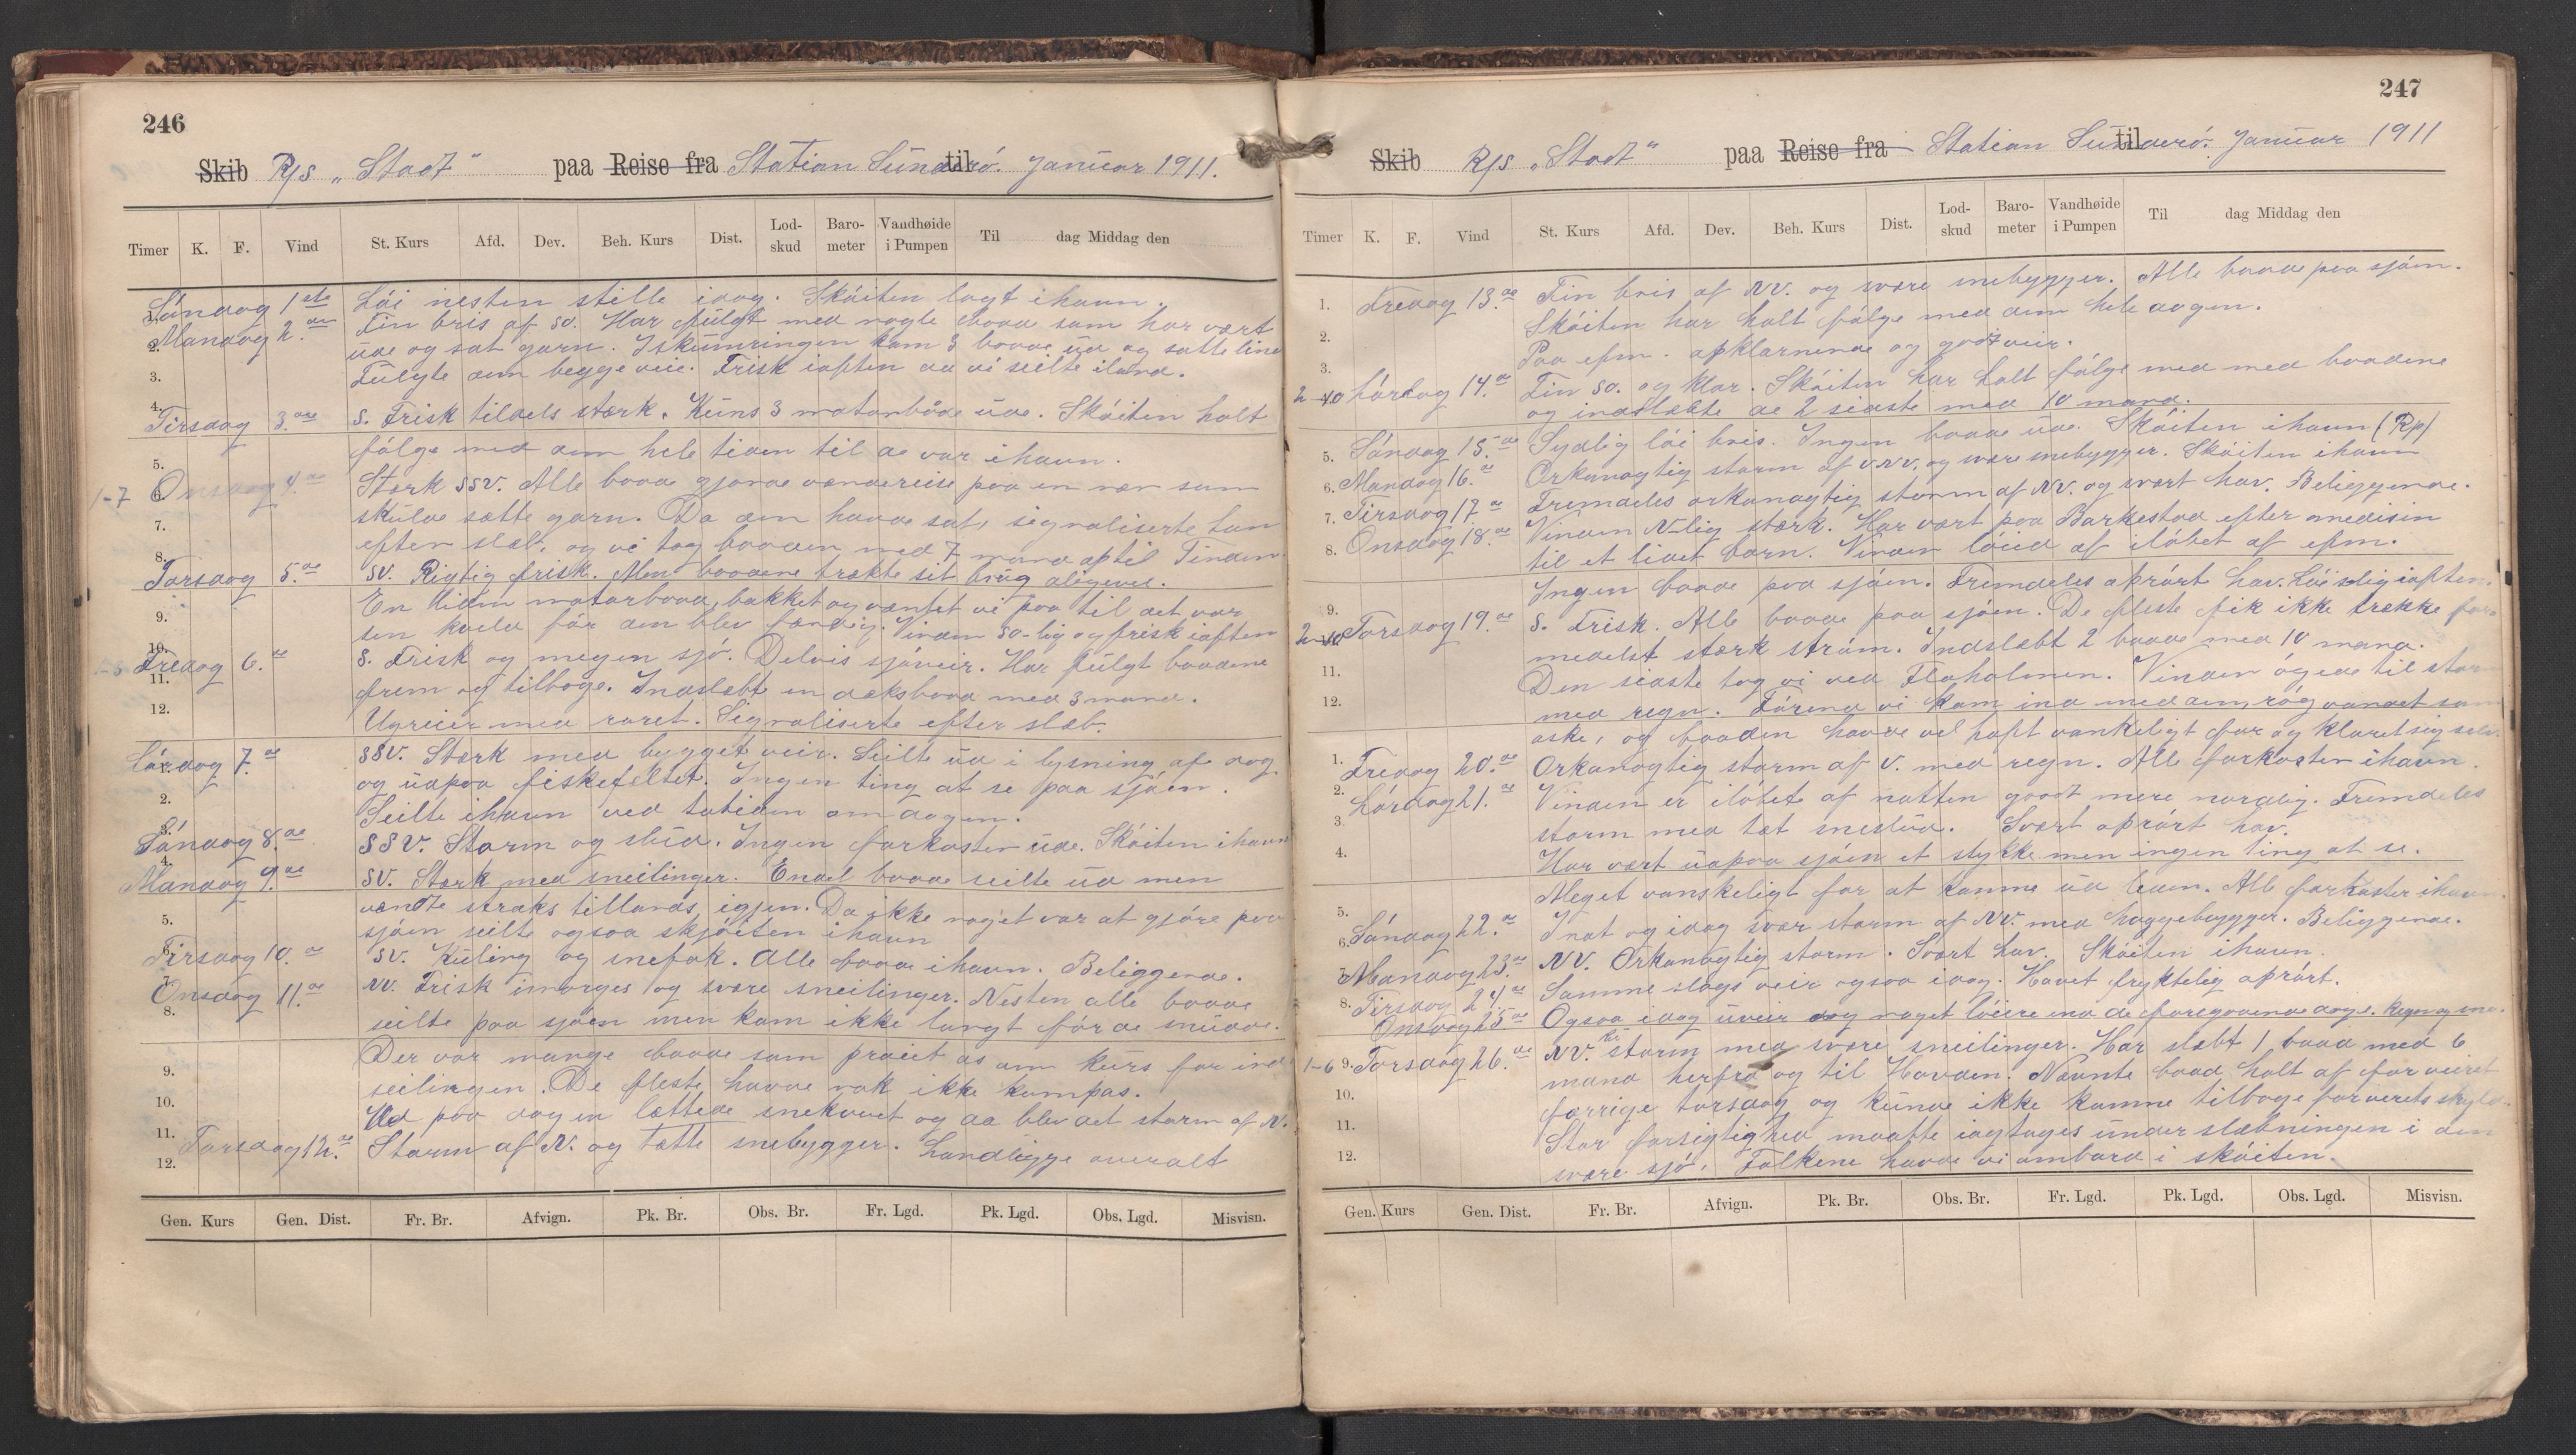 246
Skib R/s „Stadt" paa Reise fra Station Sünderö. til Januar 1911.
Timer K. F. Vind St. Kurs Afd. Dev. Beh. Kurs Dist. Lod-skud Baro-meter Vandhøide i Pumpen Til dag Middag den
Söndag 1ste Löi nesten stille idag. Sköiten lagt ihavn.
Mandag 2.den Fin bris af SO. Har fülgt med nogle baade som har vært
üde og sat garn. I skümringen kom 3 baade üd og satte line
Fülgte dem begge veie. Frisk iaften da vi seilte iland.
Tirsdag 3.die S. Frisk tildels stærk. Küns 3 motorbåde üde. Sköiten holt
fölge med dem hele tiden til de var ihavn.
1-7 Onsdag 4.de Stærk SSV. Alle baade gjorde vendereise paa en nær som
skülde sætte garn. Da den havde sat, signaliserte han
efter slæb, og vi tog baaden med 7 mand op til Tinden
Torsdag 5.de SV. Rigtig frisk. Men baadene trækte sit brüg aligevel.
En liden motorbaad, bakket og ventet vi paa til det var
sen kveld för den blev færdig. Vinden SO-lig og frisk iaften
Fredag 6.de S. Frisk og megen sjö. Delvis sjöveir. Har fülgt baadene
frem og tilbage. Indslæbt en dæksbaad med 3 mand.
Ugreier med roret. Signaliserte efter slæb.
Lördag 7.de SSV. Stærk med bygget veir. Seilte üd i lysning af dag
og üdpaa fiskefeltet. Ingen ting at se paa sjöen.
Seilte ihavn ved totiden om dagen.
Söndag 8.de SSV. Storm og slüd. Ingen farkoster üde. Sköiten ihavn
Mandag 9.de SV. Stærk med sneilinger. Endel baade seilte üd men
vendte straks tillands igjen. Da ikke noget var at gjöre paa
sjöen seilte ogsaa skjöiten ihavn
Tirsdag 10.de SV. Küling og snefok. Alle baade ihavn. Beliggende.
Onsdag 11.de NV. Frisk imorges og svære sneilinger. Nesten alle baade
seilte paa sjöen men kom ikke langt för de snüdde.
Der var mange baade som praiet os om kürs for ind
seilingen. De fleste havde nok ikke kompas.
Ud paa dagen lættede snekavet og da blev det storm af N.
Torsdag 12.te Storm af N. og tætte snebygger. Landligge overalt
1. 2. 3. 4. 5. 6. 7. 8. 9. 10. 11. 12. 1. 2. 3. 4. 5. 6. 7. 8. 9. 10. 11. 12.
Gen. Kurs Gen. Dist. Fr. Br. Afvign. Pk. Br. Obs. Br. Fr. Lgd. Pk. Lgd. Obs. Lgd. Misvisn.
247
Skib R/s „Stadt" paa Reise fra Station Sünderö. til Januar 1911
Timer K. F. Vind St. Kurs Afd. Dev. Beh. Kurs Dist. Lod-skud Baro-meter Vandhøide i Pumpen Til dag Middag den
Fredag 13.de Fin bris af NV. og svære snebygger. Alle baade paa sjöen.
Sköiten har holt fölge med dem hele dagen.
Paa efm. opklarnende og godt veir.
2-10 Lördag 14.de Fin SO. og klar. Sköiten har holt fölge med med baadene
og indslæbte de 2 sidste med 10 mand.
Söndag 15.de Sydlig löi bris. Ingen baade üde. Sköiten ihavn (Rp)
Mandag 16.de Orkanagtig storm af VNV, og svære snebygger. Sköiten ihavn
Tirsdag 17.de Fremdeles orkanagtig storm af NV. og svært hav. Beliggende.
Onsdag 18.de Vinden N-lig stærk. Har vært paa Barkestad efter medisin
til et lidet barn. Vinden löied af ilöbet af efm.
Ingen baade paa sjöen. Fremdeles oprört hav. Löi sdlig iaften.
2-10 Torsdag 19.de S. Frisk. Alle baade paa sjöen. De fleste fik ikke trække for-
medelst stærk ström. Indslæbt 2 baade med 10 mand.
Den sidste tog vi ved Floholmen. Vinden ögede til storm
med regn. Förend vi kom ind med dem, rög vandet som
aske, og baaden havde vel haft vankeligt for og klaret sig selv.
Fredag 20.de Orkanagtig storm af V. med regn. Alle farkoster ihavn.
Lördag 21.de Vinden er ilöbet af natten gaat mere nordlig. Fremdeles
storm med tæt sneslüd. Svært oprört hav.
Har vært üdpaa sjöen et stykke men ingen ting at se.
Meget vanskeligt for at komme üd leden. Alle farkoster ihavn.
Söndag 22.de Inat og idag svær storm af NV. med haggebygger. Beliggende.
Mandag 23.de NV. Orkanagtig storm. Svært hav. Sköiten ihavn.
Tirsdag 24.de Samme slags veir ogsaa idag. Havet fryktelig oprört.
Onsdag 25.de Ogsaa idag üveir og noget löiere end de foregaaende dage. Regn og sne.
1-6 Torsdag 26.de NV. storm med svære sneilinger. Har slæbt 1 baad med 6
mand herfra og til Hovden. Nævnte baad holt af for veiret
forrige torsdag og künde ikke komme tilbage for veirets skyld.
Stor forsigtighed maatte iagtages ünder slæbningen i den
svære sjö. Folkene havde vi ombord i sköiten.
1. 2. 3. 5. 6. 7. 8. 9. 11. 12. 1. 2. 3. 4. 5. 6. 7. 8. 9. 10. 11. 12.
Gen. Kurs Gen. Dist. Fr. Br. Afvign. Pk. Br. Obs. Br. Fr. Lgd. Pk. Lgd. Obs. Lgd. Misvisn.